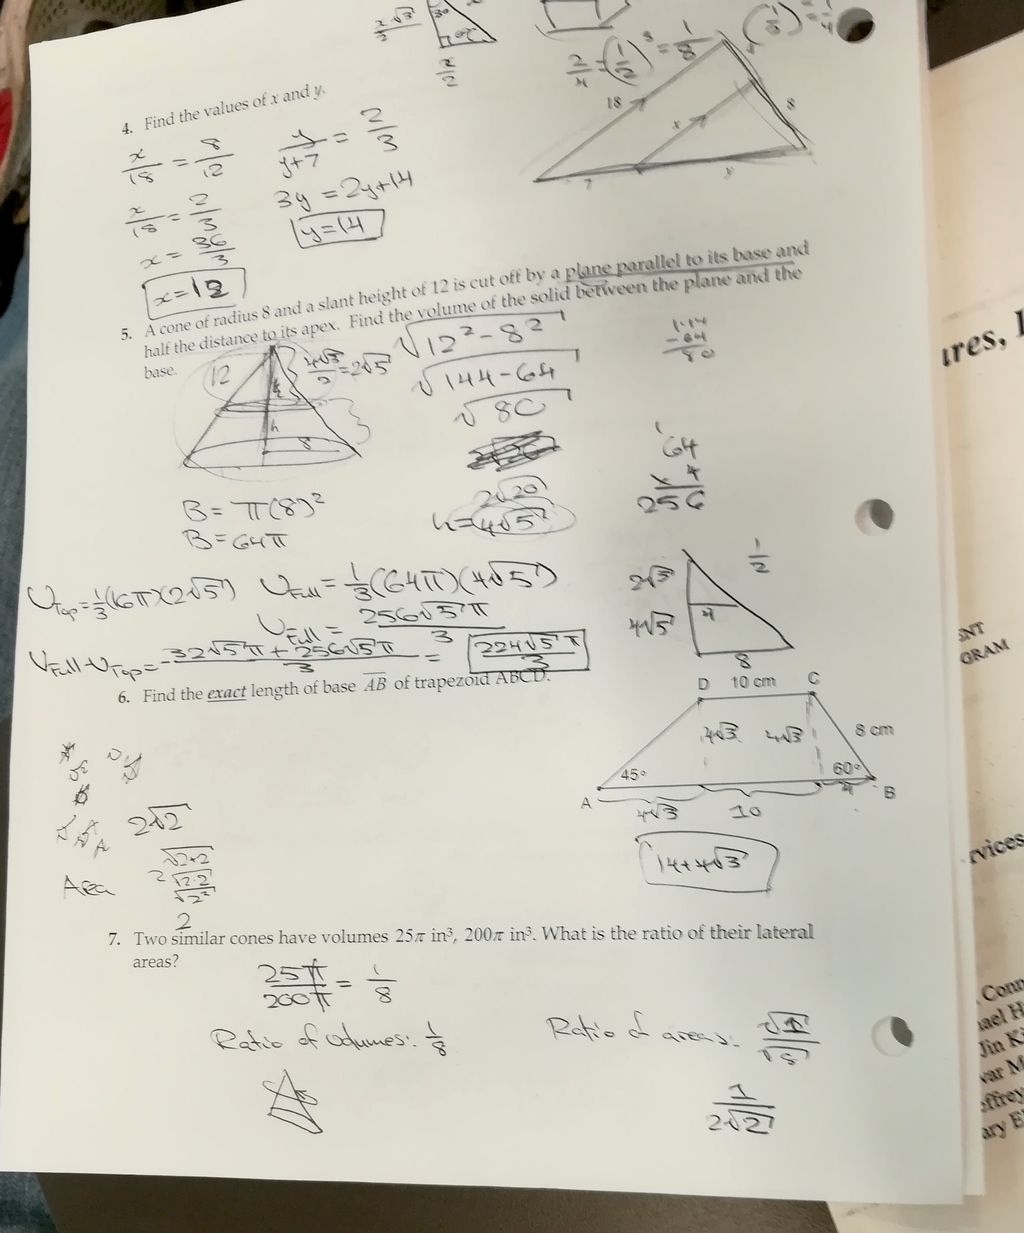 x/2 √3
30°
x/2
2/4 = (1/2)³ = 1/8
4. Find the values of x and y.
18
x
8
7
y
x/18 = 8/12
y/y+7 = 2/3
x/18 = 2/3
3y = 2y+14
x = 36/3
y=14
x=12
5. A cone of radius 8 and a slant height of 12 is cut off by a plane parallel to its base and
half the distance to its apex. Find the volume of the solid between the plane and the
base.
12
4√3/2 = 2√5
h
8
√12² - 8²
√144 - 64
√80
2√20
h = 4√5
144
-64
80
64
x 4
256
B = π(8)²
B = 64π
V Top = 1/3(16π)(2√5)
V Full = 1/3(64π)(4√5)
V Full = 256√5π/3
V Full - V Top = -32√5π + 256√5π/3 = 224√5π/3
1/2
2√3
4√5
4
8
6. Find the exact length of base AB of trapezoid ABCD.
D 10 cm C
4√3 4√3
8 cm
45°
60°
A
B
4√3 10 4
14+4√3
2√2
Area
2
7. Two similar cones have volumes 25π in³, 200π in³. What is the ratio of their lateral
areas?
25π/200π = 1/8
Ratio of Volumes: 1/8
Ratio of areas: √1/√8
1/2√2
ures, I
NT
GRAM
rvices
Conn
ael H
Jin K
var M
effrey
ary E